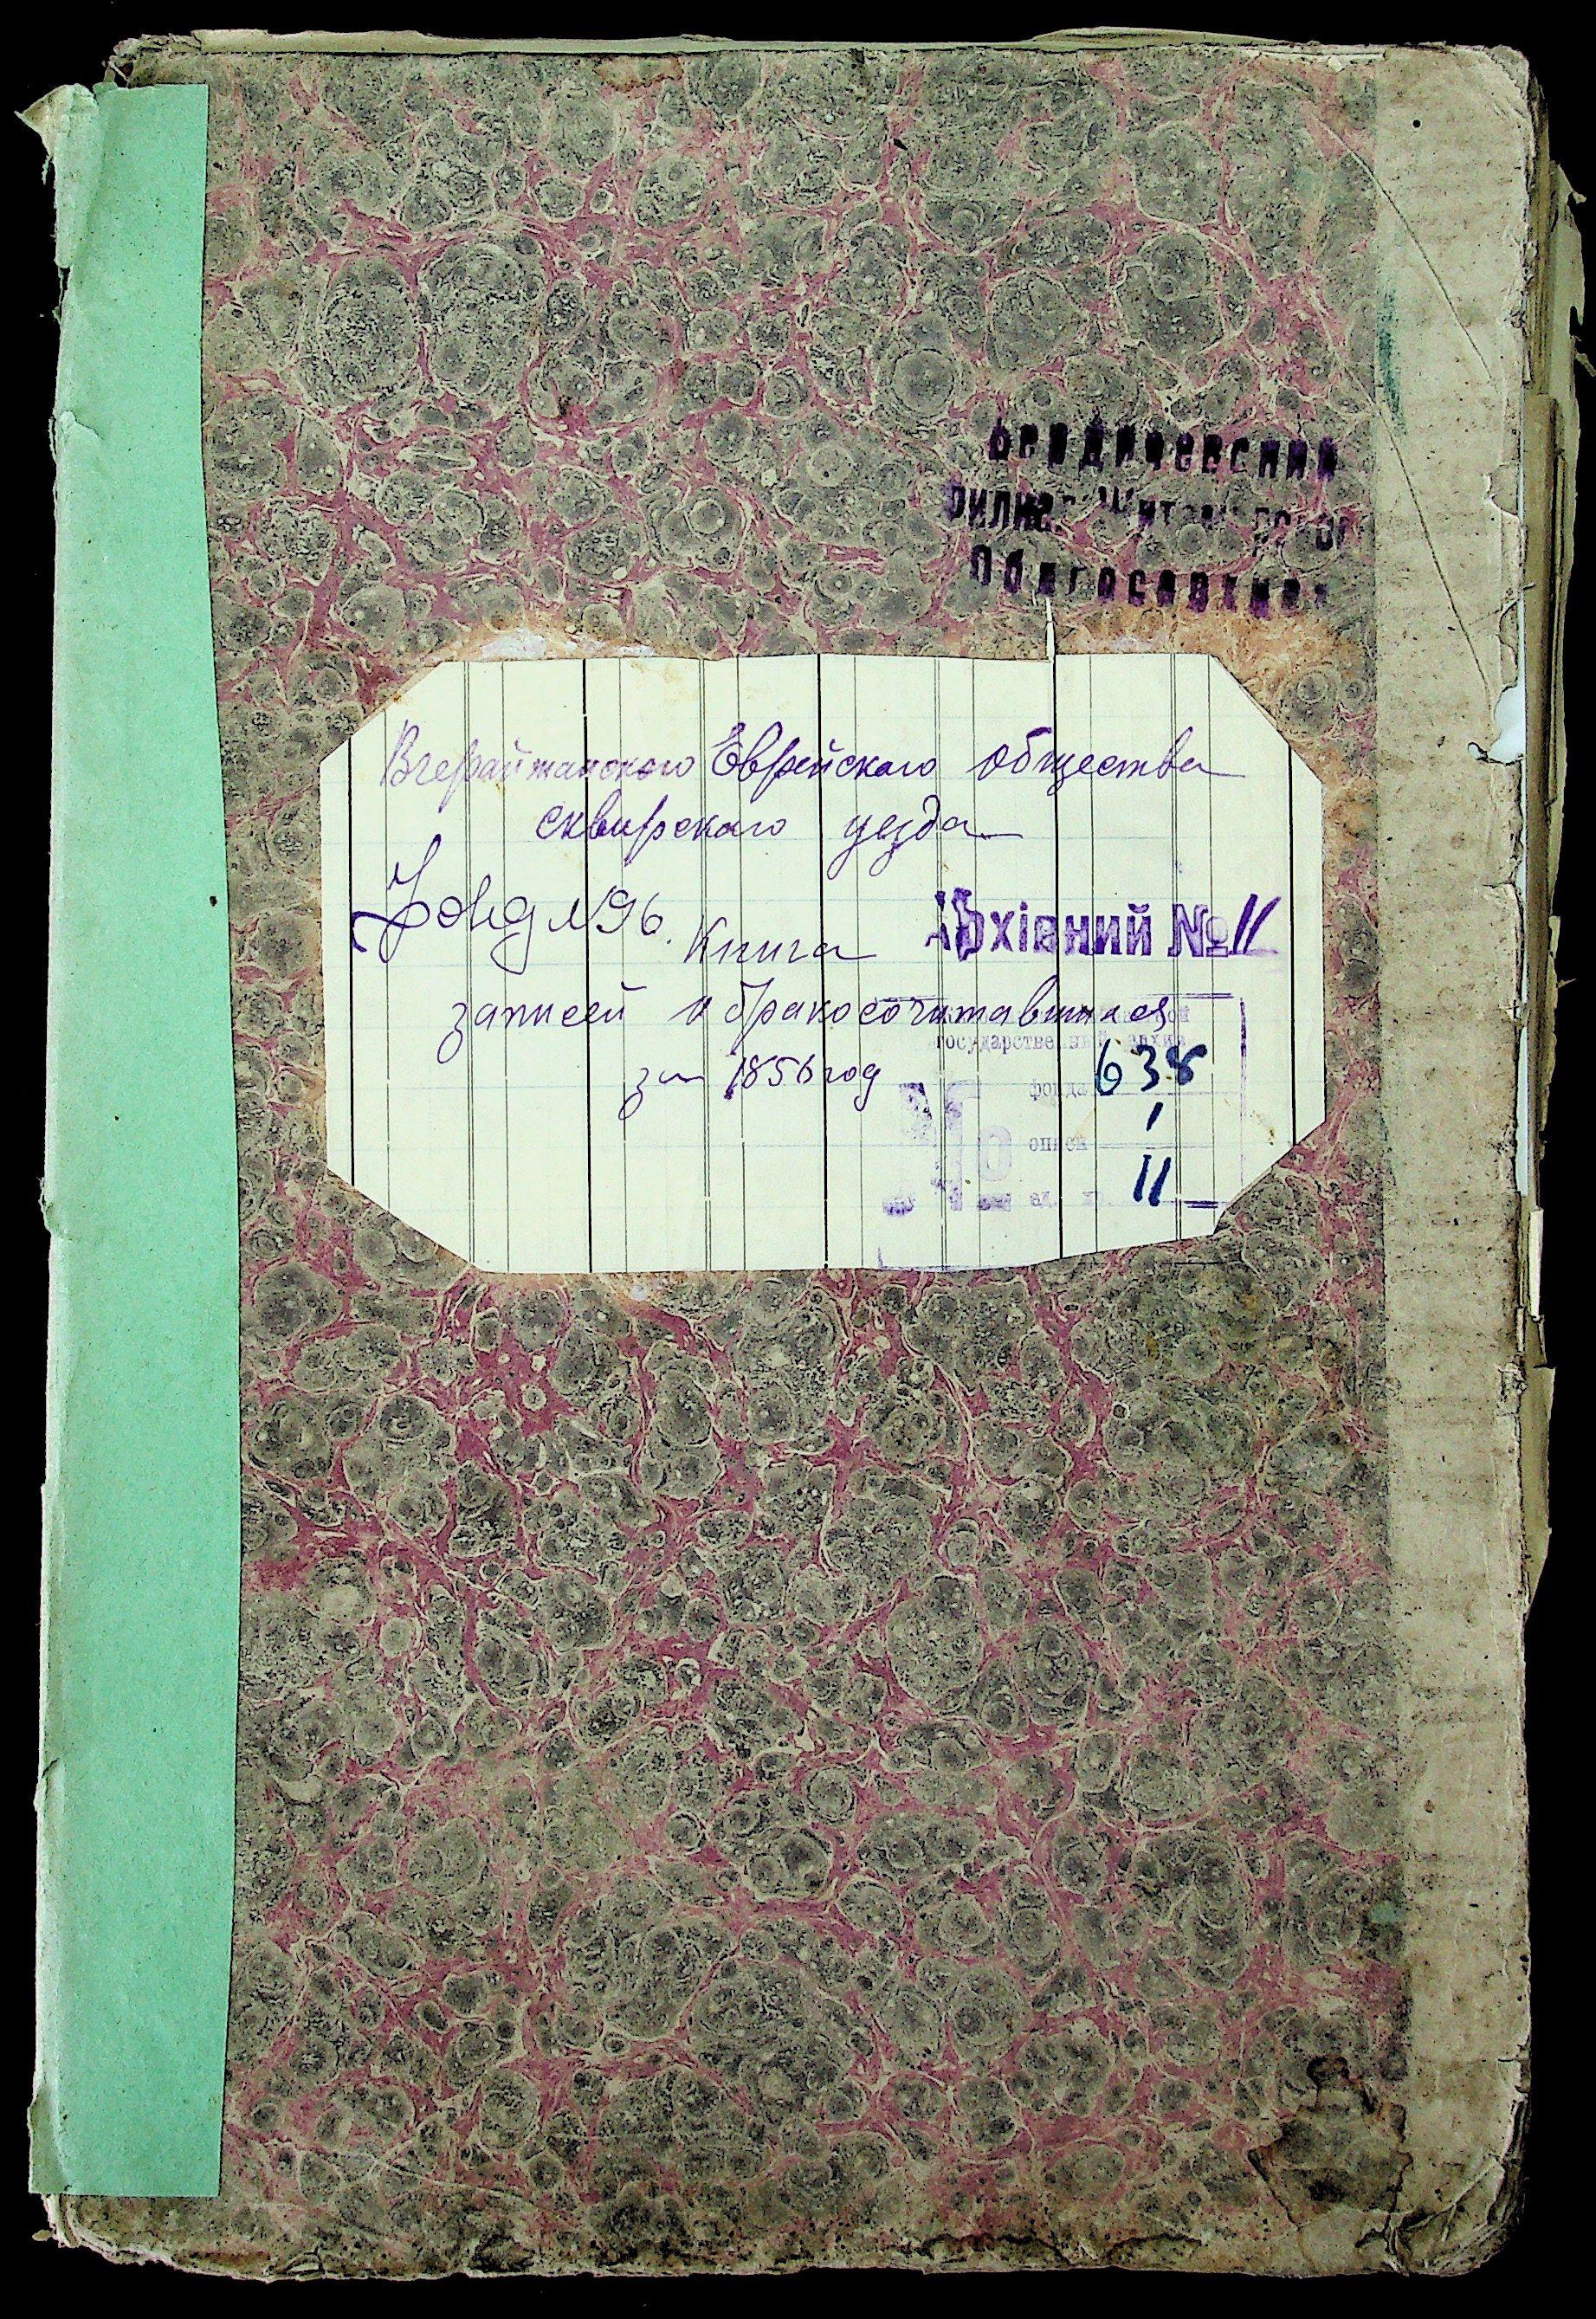 Бердичевский
филиал Житомирского
Облгосархива
Вчерайшанского Еврейского общества
сквирского уезда
Фонд №96.
Архівний № 11
Книга
записей о бракосочитавшихся
государственный архив
за 1856 год
фонда 638
опись 1
ед. хр. 11